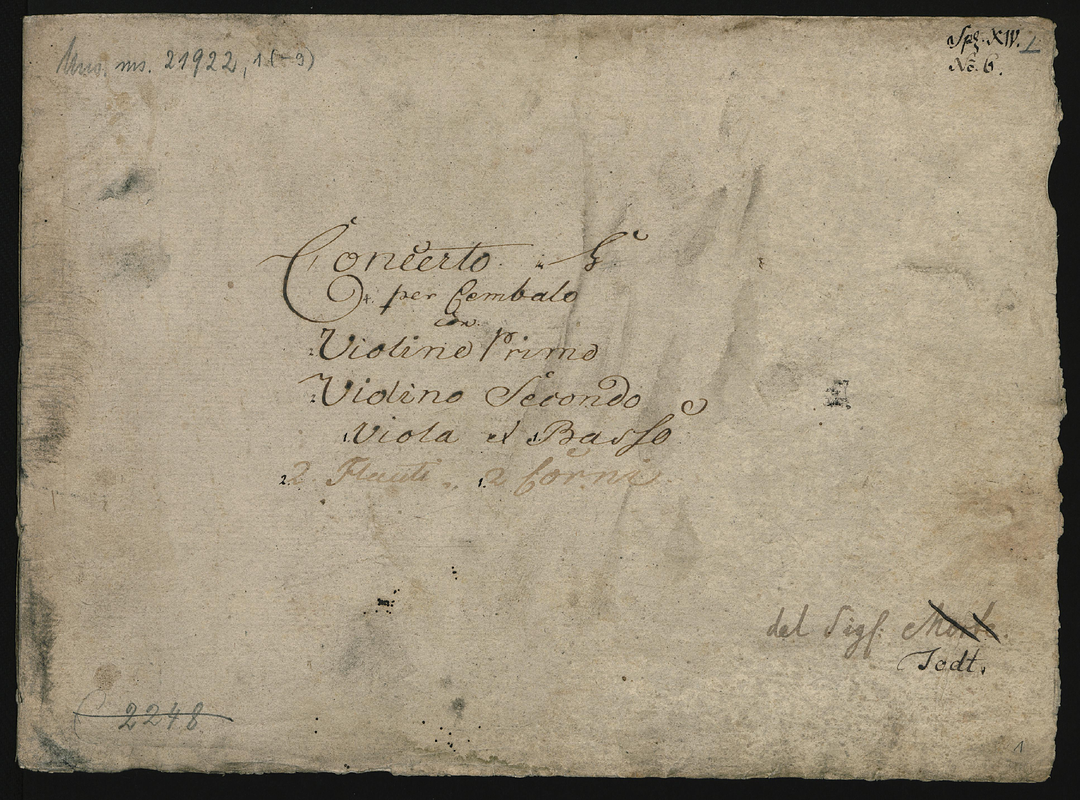 Mus. ms. 21922, 1(-9)
Spz. XIV. L
No. 6.
Concerto. G
per Cembalo
con
Violino Primo
Violino Secondo
Viola et Basso
2 Flauti 2 Corni
del Sigl.
Todt.
2248
1